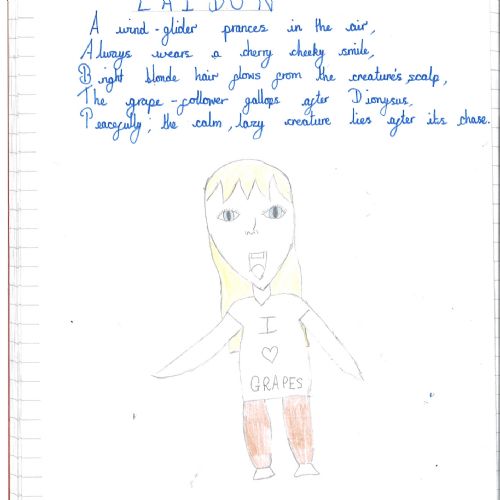 LAIDON
A wind-glider prances in the air,
Always wears a cherry cheeky smile,
Bright blonde hair flows from the creature's scalp,
The grape-follower gallops after Dionysus,
Peacefully, the calm, lazy creature lies after its chase.
I
GRAPES